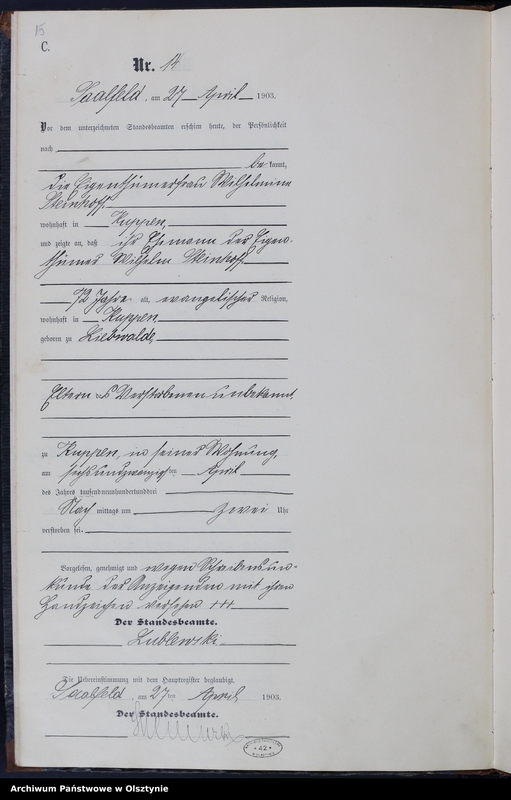 15
C.
Nr. 14
Saalfeld, am 27 April 1903.
Vor dem unterzeichneten Standesbeamten erschien heute, der Persönlichkeit
nach
be kannt,
die Eigenthümerfrau Wilhelmine
Steinhoff,
wohnhaft in Kuppen,
und zeigte an, daß ihr Ehemann der Eigen-
thümer Wilhelm Steinhoff,
72 Jahre alt, evangelischer Religion,
wohnhaft in Kuppen,
geboren zu Liebwalde,
Eltern des Verstorbenen unbekannt,
zu Kuppen, in seiner Wohnung,
am sechsundzwanzigsten April
des Jahres tausendneunhundertunddrei
Nach mittags um zwei Uhr
verstorben sei.
Vorgelesen, genehmigt und wegen Schreibensun-
kunde der Anzeigenden mit ihren
Handzeichen versehen +++
Der Standesbeamte.
Lublewski
Die Uebereinstimmung mit dem Hauptregister beglaubigt.
Saalfeld, am 27ten April 1903.
Der Standesbeamte.
42
Archiwum Państwowe w Olsztynie